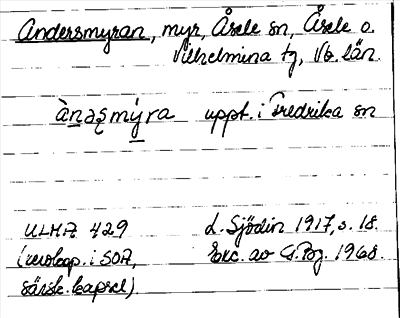 Andersmyran, myr, Åsele sn, Åsele o.
Vilhelmina tg, Vb. län.
ànǝʂmýra uppt. i Fredrika sn
ULMA 429 L. Sjödin 1917, s. 18.
(xerokop. i SOA, Exc. av G.Pg. 1968.
särsk. kapsel)